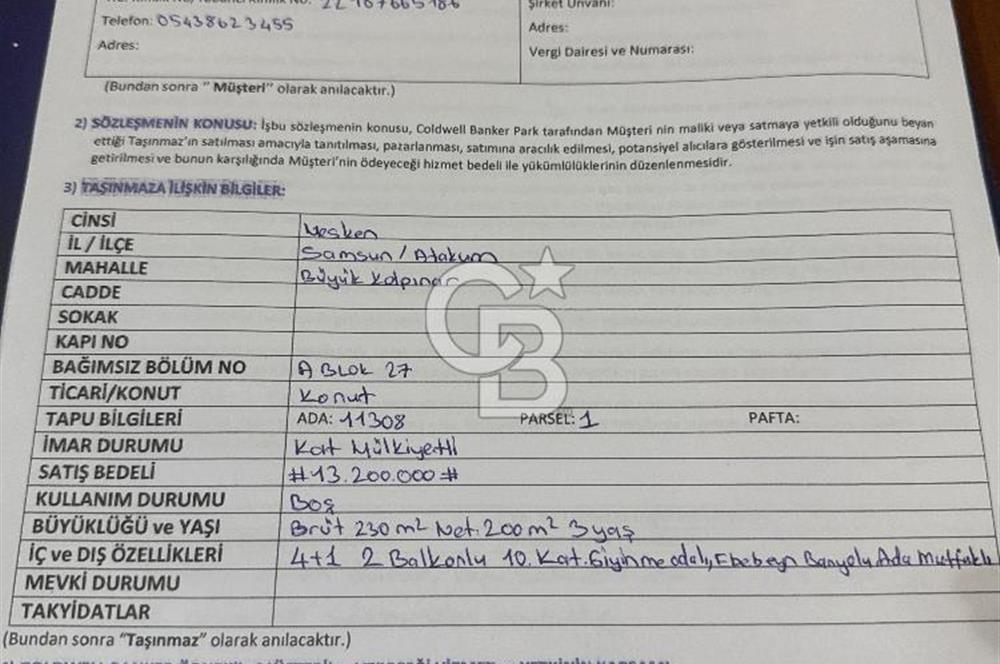 Telefon: 05438623455
Adres:
Şirket Unvanı:
Adres:
Vergi Dairesi ve Numarası:
(Bundan sonra " Müşteri" olarak anılacaktır.)
2) SÖZLEŞMENİN KONUSU: İşbu sözleşmenin konusu, Coldwell Banker Park tarafından Müşteri nin maliki veya satmaya yetkili olduğunu beyan
ettiği Taşınmaz'ın satılması amacıyla tanıtılması, pazarlanması, satımına aracılık edilmesi, potansiyel alıcılara gösterilmesi ve işin satış aşamasına
getirilmesi ve bunun karşılığında Müşteri'nin ödeyeceği hizmet bedeli ile yükümlülüklerinin düzenlenmesidir.
3) TAŞINMAZA İLİŞKİN BİLGİLER:
CİNSİ Mesken
İL / İLÇE Samsun / Atakum
MAHALLE Büyük Kolpınar
CADDE
SOKAK
KAPI NO
BAĞIMSIZ BÖLÜM NO A BLOK 27
TİCARİ/KONUT Konut
TAPU BİLGİLERİ ADA: 11308 PARSEL: 1 PAFTA:
İMAR DURUMU Kat Mülkiyetli
SATIŞ BEDELİ #13.200.000#
KULLANIM DURUMU Boş
BÜYÜKLÜĞÜ ve YAŞI Brüt 230 m² Net.200 m² 3 yaş
İÇ ve DIŞ ÖZELLİKLERİ 4+1 2 Balkonlu 10. Kat. Giyinme odalı, Ebebeyn Banyolu Ada Mutfaklı
MEVKİ DURUMU
TAKYİDATLAR
(Bundan sonra "Taşınmaz" olarak anılacaktır.)
CB